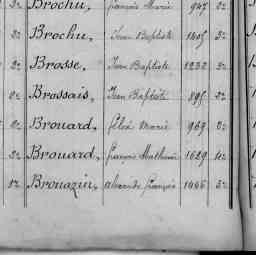 2e Brochu, François Marie 947 2e
2e Brochu, Jean Baptiste 1405 3e
2e Brosse, Jean Baptiste 1232 3e
2e Brossais, Jean Baptiste 895 2e
2e Brouard, Félix Marie 969 2e
2e Brouard, François Mathurin 1629 4e
1er Brouazin, alexandre françois 1446 3e